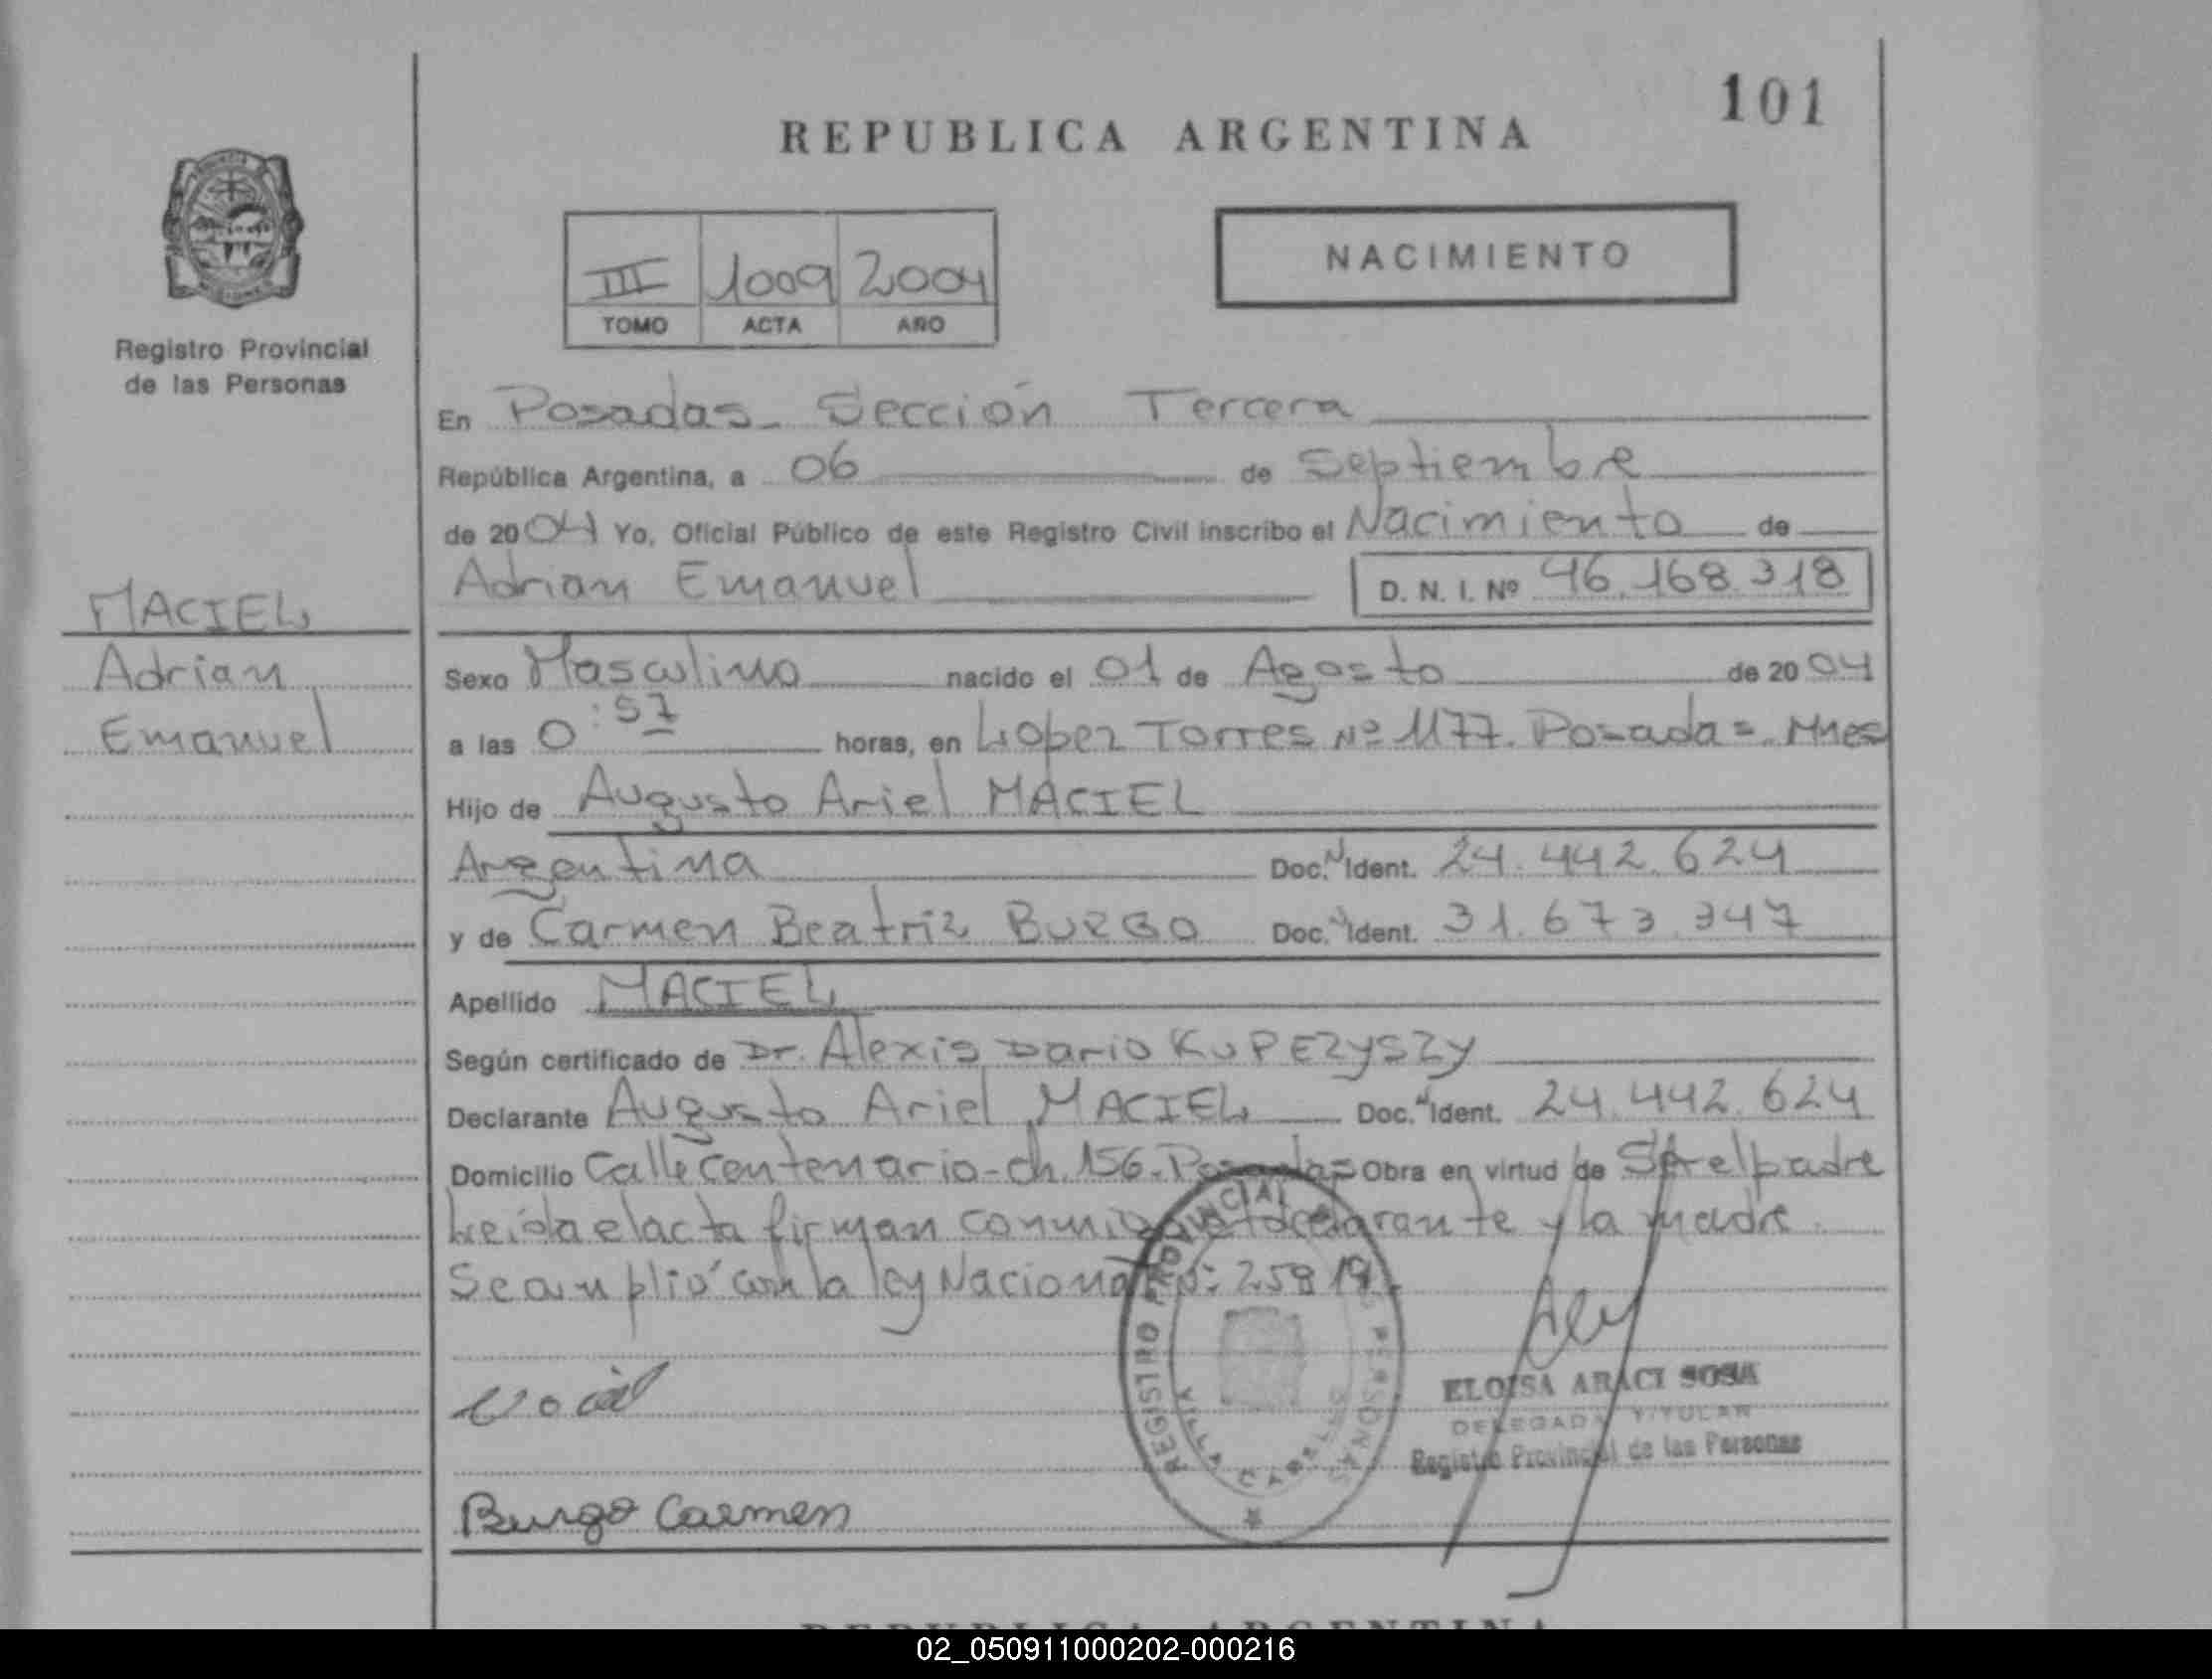 101
REPUBLICA ARGENTINA
NACIMIENTO
III 1009 2004
TOMO ACTA AÑO
Registro Provincial
de las Personas
En Posadas - Sección Tercera
República Argentina, a 06 de Septiembre
de 2004 Yo, Oficial Público de este Registro Civil inscribo el Nacimiento de
Adrian Emanuel D. N. I. Nº 46.168.318
MACIEL
Adrian
Emanuel
Sexo Masculino nacido el 01 de Agosto de 2004
a las 0:57 horas, en Lopez Torres Nº 1177. Posadas. Mnes
Hijo de Augusto Ariel MACIEL
Argentina Doc. Ident. 24.442.624
y de Carmen Beatriz BURGO Doc. Ident. 31.673.347
Apellido MACIEL
Según certificado de Dr. Alexis Dario KUPEZYSZY
Declarante Augusto Ariel MACIEL Doc. Ident. 24.442.624
Domicilio Calle Centenario - ch. 156. Posadas Obra en virtud de Ser el padre
Leída el acta firman conmigo el declarante y la madre.
Se cumplió con la ley Nacional Nº: 25819.
REGISTRO PROVINCIAL PERSONAS
VILLA CABELLO
ELOISA ARACI SOSA
DELEGADA TITULAR
Registro Provincial de las Personas
Burgo Carmen
REPUBLICA ARGENTINA
02_050911000202-000216